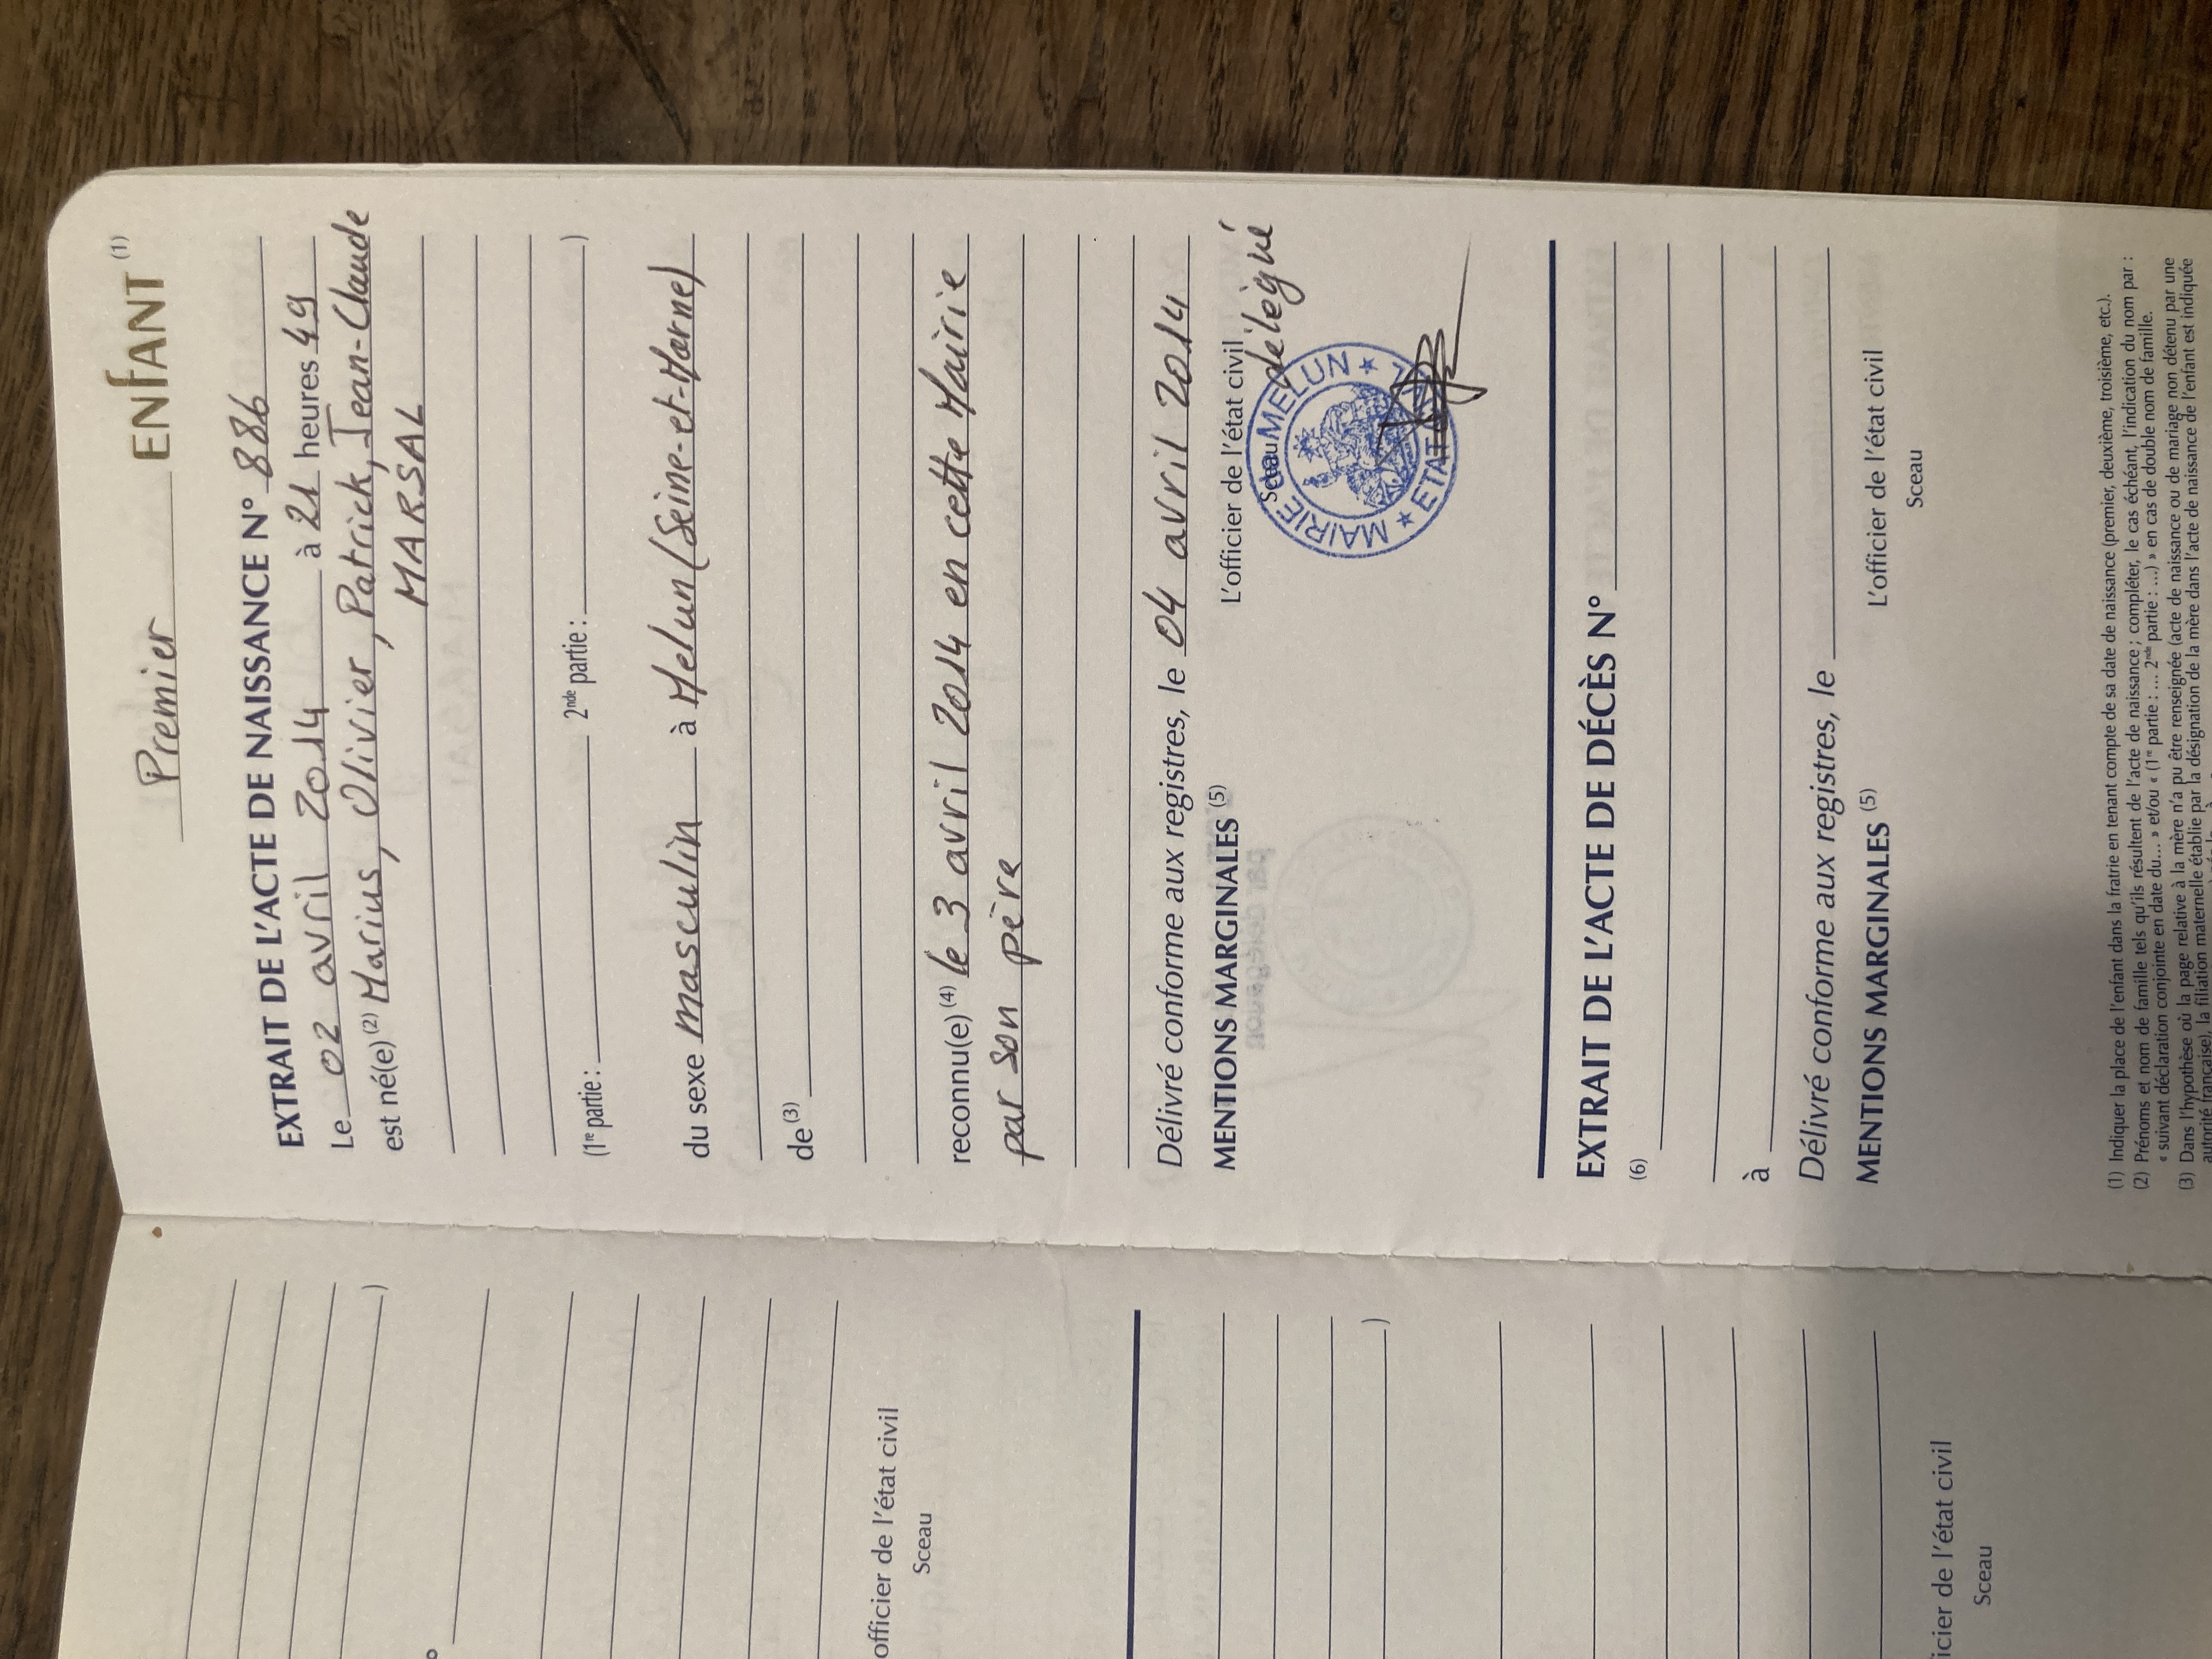 Premier ENFANT (1)
EXTRAIT DE L'ACTE DE NAISSANCE N° 886
Le 02 avril 2014 à 21 heures 49
est né(e) (2) Marius, Olivier, Patrick, Jean-Claude
MARSAL
(1re partie : 2nde partie : )
du sexe masculin à Melun (Seine-et-Marne)
de (3)
reconnu(e) (4) le 3 avril 2014 en cette Mairie
par son père
Délivré conforme aux registres, le 04 avril 2014
MENTIONS MARGINALES (5) L'officier de l'état civil
délégué
Sceau
MAIRIE de MELUN
ETAT CIVIL
EXTRAIT DE L'ACTE DE DÉCÈS N°
(6)
à
Délivré conforme aux registres, le
MENTIONS MARGINALES (5) L'officier de l'état civil
Sceau
(1) Indiquer la place de l'enfant dans la fratrie en tenant compte de sa date de naissance (premier, deuxième, troisième, etc.).
(2) Prénoms et nom de famille tels qu'ils résultent de l'acte de naissance ; compléter, le cas échéant, l'indication du nom par :
« suivant déclaration conjointe en date du… » et/ou « (1re partie : …. 2nde partie : …) » en cas de double nom de famille.
(3) Dans l'hypothèse où la page relative à la mère n'a pu être renseignée (acte de naissance ou de mariage non détenu par une
autorité française), la filiation maternelle établie par la désignation de la mère dans l'acte de naissance de l'enfant est indiquée
)
officier de l'état civil
Sceau
)
icier de l'état civil
Sceau